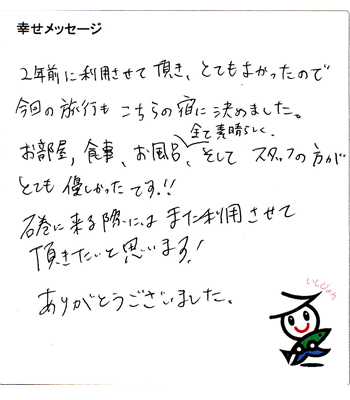 幸せメッセージ
2年前に利用させて頂き、とてもよかったので
今回の旅行もこちらの宿に決めました。
お部屋,食事、お風呂、全て素晴らしく、そして スタッフの方が
とても優しかったです!!
石巻に来る際には また利用させて
頂きたいと思います!
ありがとうございました。
いしぴょん